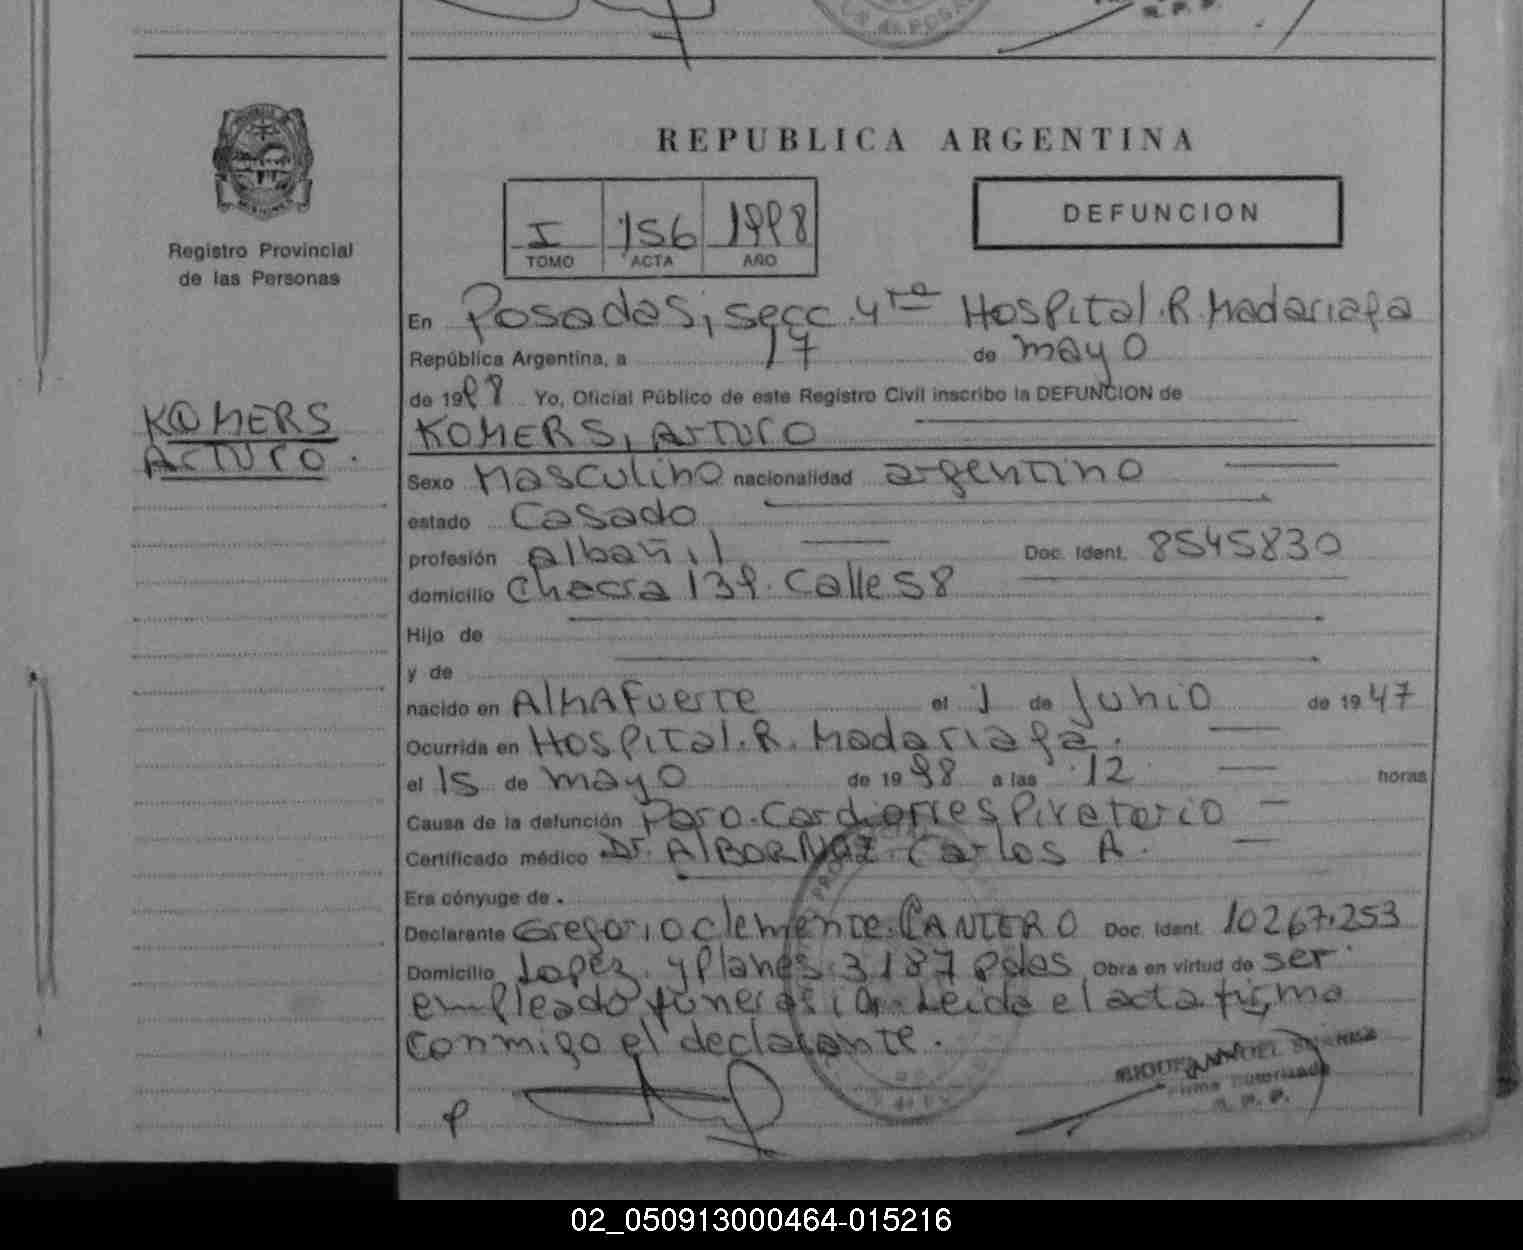 REPUBLICA ARGENTINA
Registro Provincial
de las Personas
I 156 1998
TOMO ACTA AÑO
DEFUNCION
KOMERS
Arturo.
En Posadas, secc. 4ta Hospital.R.Madariaga
República Argentina, a 17 de mayo
de 1998 Yo, Oficial Público de este Registro Civil inscribo la DEFUNCION de
KOMERS, Arturo
Sexo Masculino nacionalidad argentino
estado Casado
profesión albañil Doc. Ident. 8545830
domicilio Chacra 139. Calle 58
Hijo de
y de
nacido en Almafuerte el 1 de Junio de 1947
Ocurrida en Hospital.R.Madariaga.
el 15 de mayo de 1998 a las 12 horas
Causa de la defunción Paro.Cardiorrespiratorio
Certificado médico Dr. AlBORNOZ. Carlos A.
Era cónyuge de .
Declarante Gregorio Clemente.CANTERO Doc. Ident. 10267.253
Domicilio Lopez. y Planes.3187 Pdas Obra en virtud de ser
empleado funeraria. Leida el acta firma
conmigo el declarante.
Firma Autorizada
R. P. P.
02_050913000464-015216